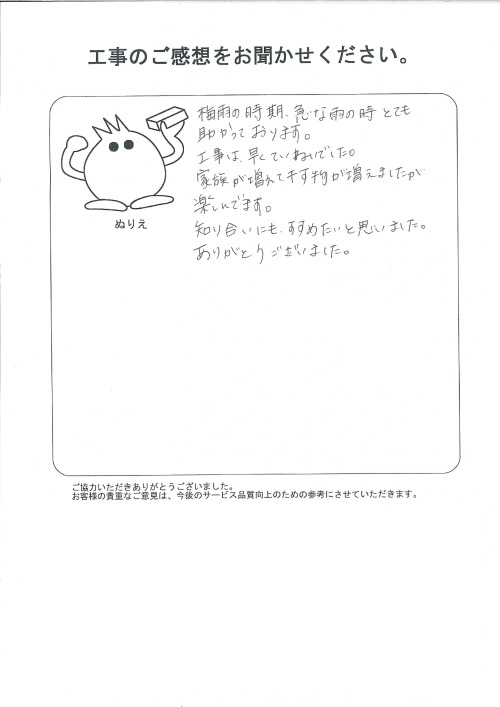 工事のご感想をお聞かせください。
梅雨の時期、急な雨の時とても
助かっております。
工事は、早くていねいでした。
家族が増えて干す物が増えましたが
楽しんでます。
知り合いにも、すすめたいと思いました。
ありがとうございました。
ぬりえ
ご協力いただきありがとうございました。
お客様の貴重なご意見は、今後のサービス品質向上のための参考にさせていただきます。